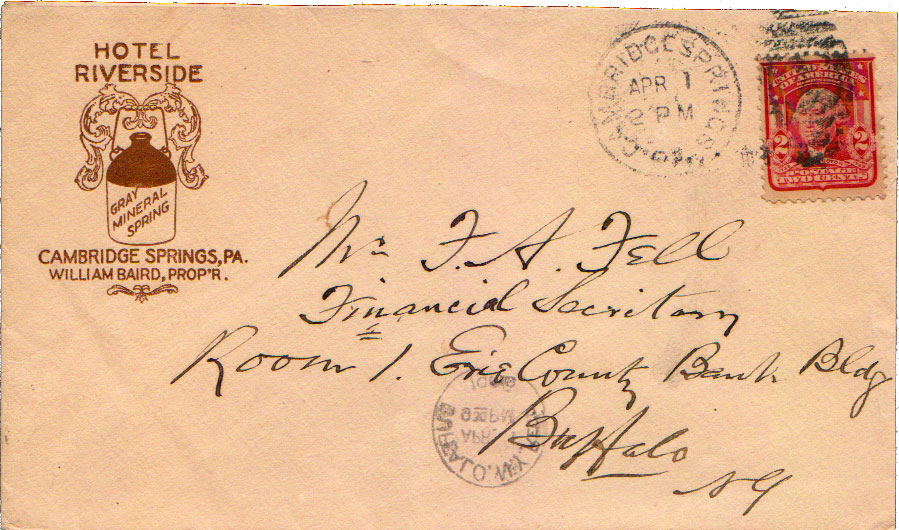 HOTEL
RIVERSIDE
GRAY
MINERAL
SPRING
CAMBRIDGE SPRINGS, PA.
WILLIAM BAIRD, PROP'R.
CAMBRIDGE SPRINGS
APR 1
2 PM
UNITED STATES
OF AMERICA
2 2
POSTAGE
TWO CENTS
Mr F. A. Fell
Financial Secretary
Room 1. Erie County Bank Bldg
Buffalo
NY
BUFFALO, N.Y.
APR
PM